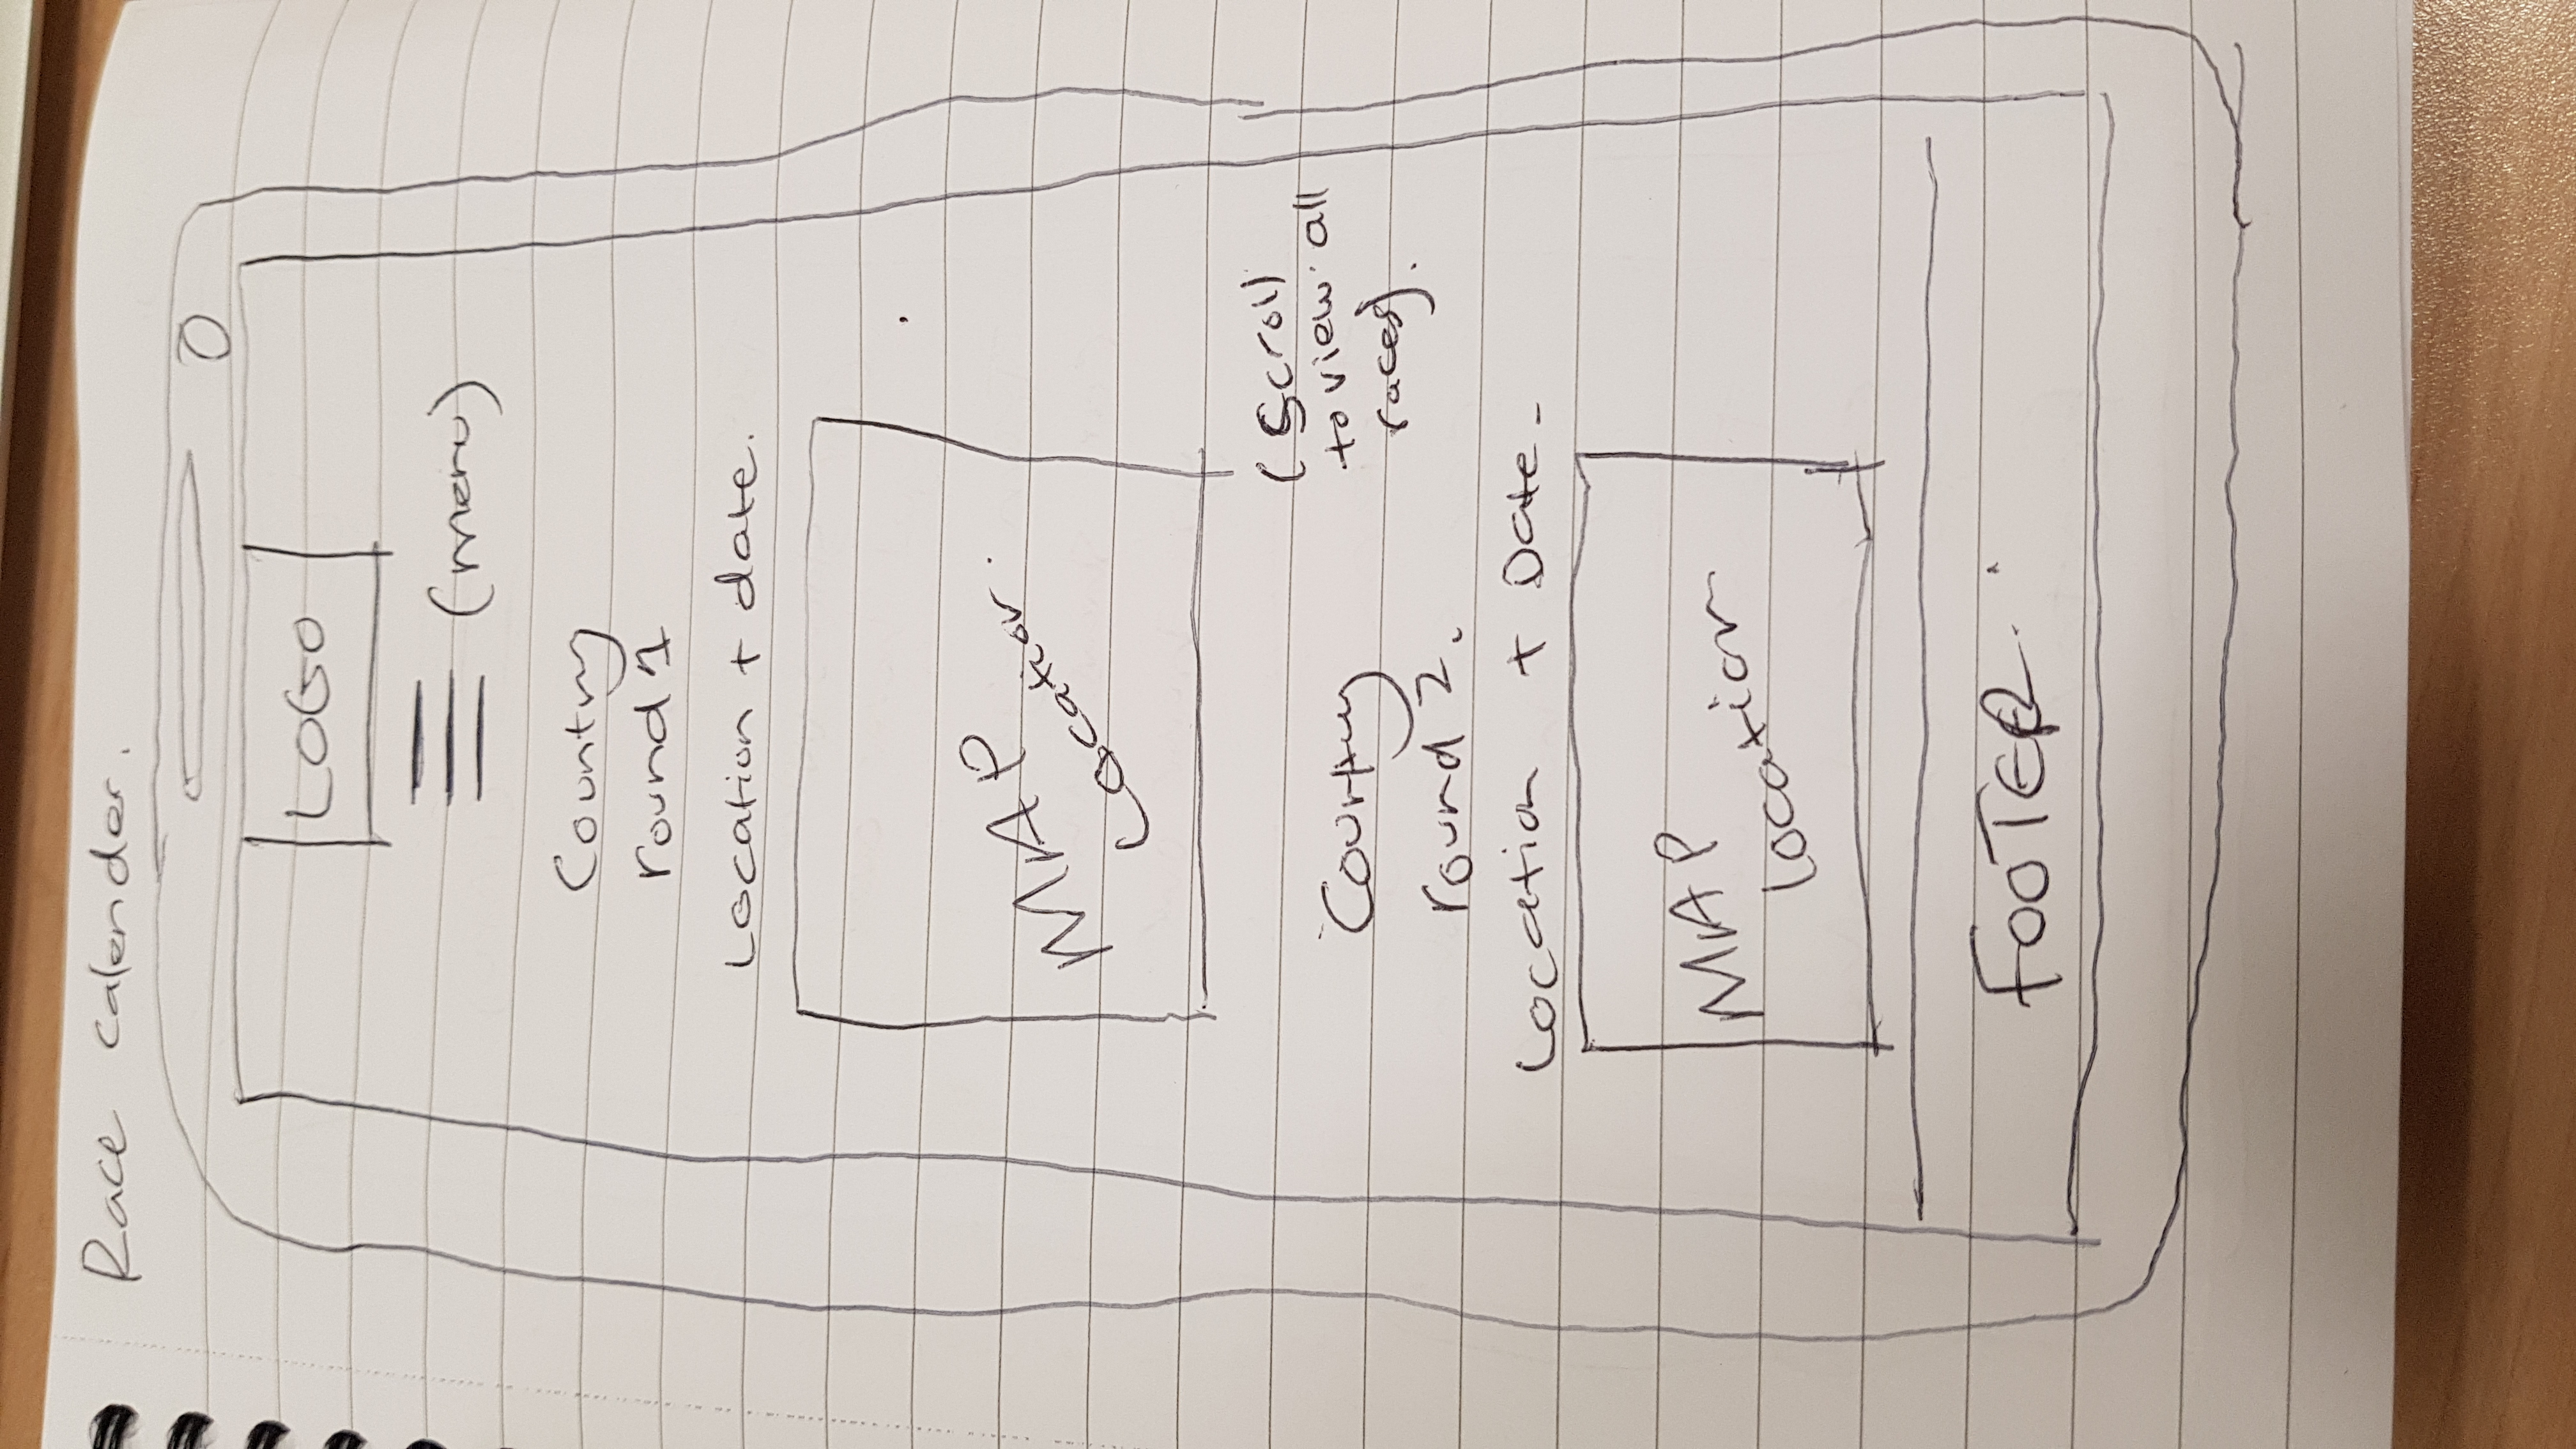 Race calender.
LOGO
(menu)
Country
round 1
Location + date.
MAP
Location.
(Scroll
to view all
races).
Country
round 2.
Location + Date-
MAP
location
FOOTER.